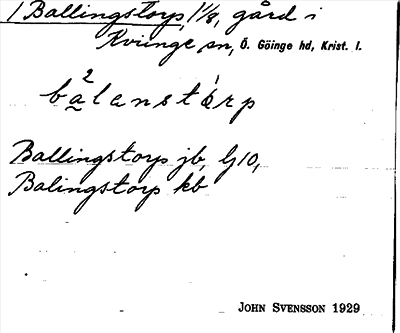 1 Ballingstorp, 1/8, gård i
Kviinge sn, Ö. Göinge hd, Krist. l.
2
balanstårp
Ballingstorp jb, G10,
Balingstorp kb
JOHN SVENSSON 1929